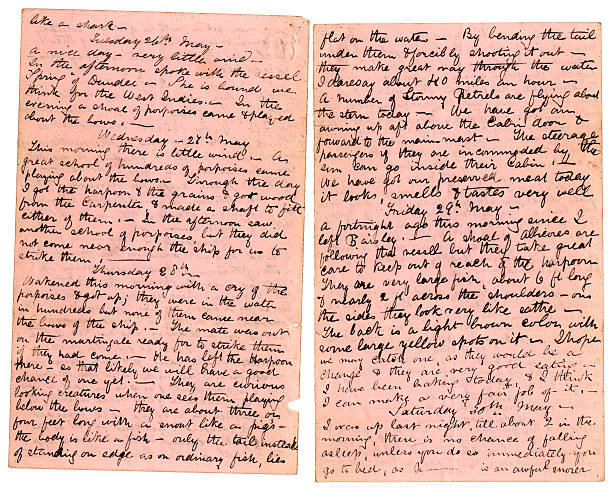 like a shark —
Tuesday 26th May —
A nice day — very little wind —
In the afternoon spoke with the vessel
Spring of Dundee — She is bound we
think for the West Indies — In the
evening a shoal of porpoises came & played
about the bows. —
Wednesday — 27th May
This morning there is little wind — As
great school of hundreds of porpoises came
playing about the bows — Through the day
I got the harpoon & the grains & got wood
from the Carpenter & made a shaft to fit
either of them. — In the afternoon saw
another school of porpoises, but they did
not come near enough the ship for us to
strike them. —
Thursday 28th
Wakened this morning with a cry of the
porpoises & got up, they were in the water
in hundreds but none of them came near
the bows of the ship — The mate was out
on the martingale ready for to strike them
if they had come. — He has left the harpoon
there — so that likely we will have a good
chance of one yet. — They are curious
looking creatures when one sees them playing
below the bows — they are about three or
four feet long with a snout like a pigs —
the body is like a fish — only the tail instead
of standing on edge as an ordinary fish, lies
flat on the water — By bending the tail
under them & forcibly shooting it out —
they make great way through the water
I daresay about 40 miles an hour —
A number of Stormy Petrels are flying about
the stern today — We have got an
awning up aft above the Cabin door &
forward to the main mast — The steerage
passengers if they are incommoded by the
sun can go inside their Cabin. —
We have got our preserved meat today
it looks, smells & tastes very well
Friday 29th May —
A fortnight ago this morning since I
left — A shoal of are
following the vessel but they take great
care to keep out of reach of the harpoon
They are very large fish, about 6 ft long
& nearly 2 ft across the shoulders — on
the sides they look very like
The back is a light brown color with
some large yellow spots on it — I hope
we may catch one, as they would be a
change & they are very good eating —
I have been baking today, & I think
I can make a very fair job of it. —
Saturday 30th May —
I was up last night, till about 2 in the
morning, there is no chance of falling
asleep, unless you do so immediately you
go to bed, as — is an awful snorer